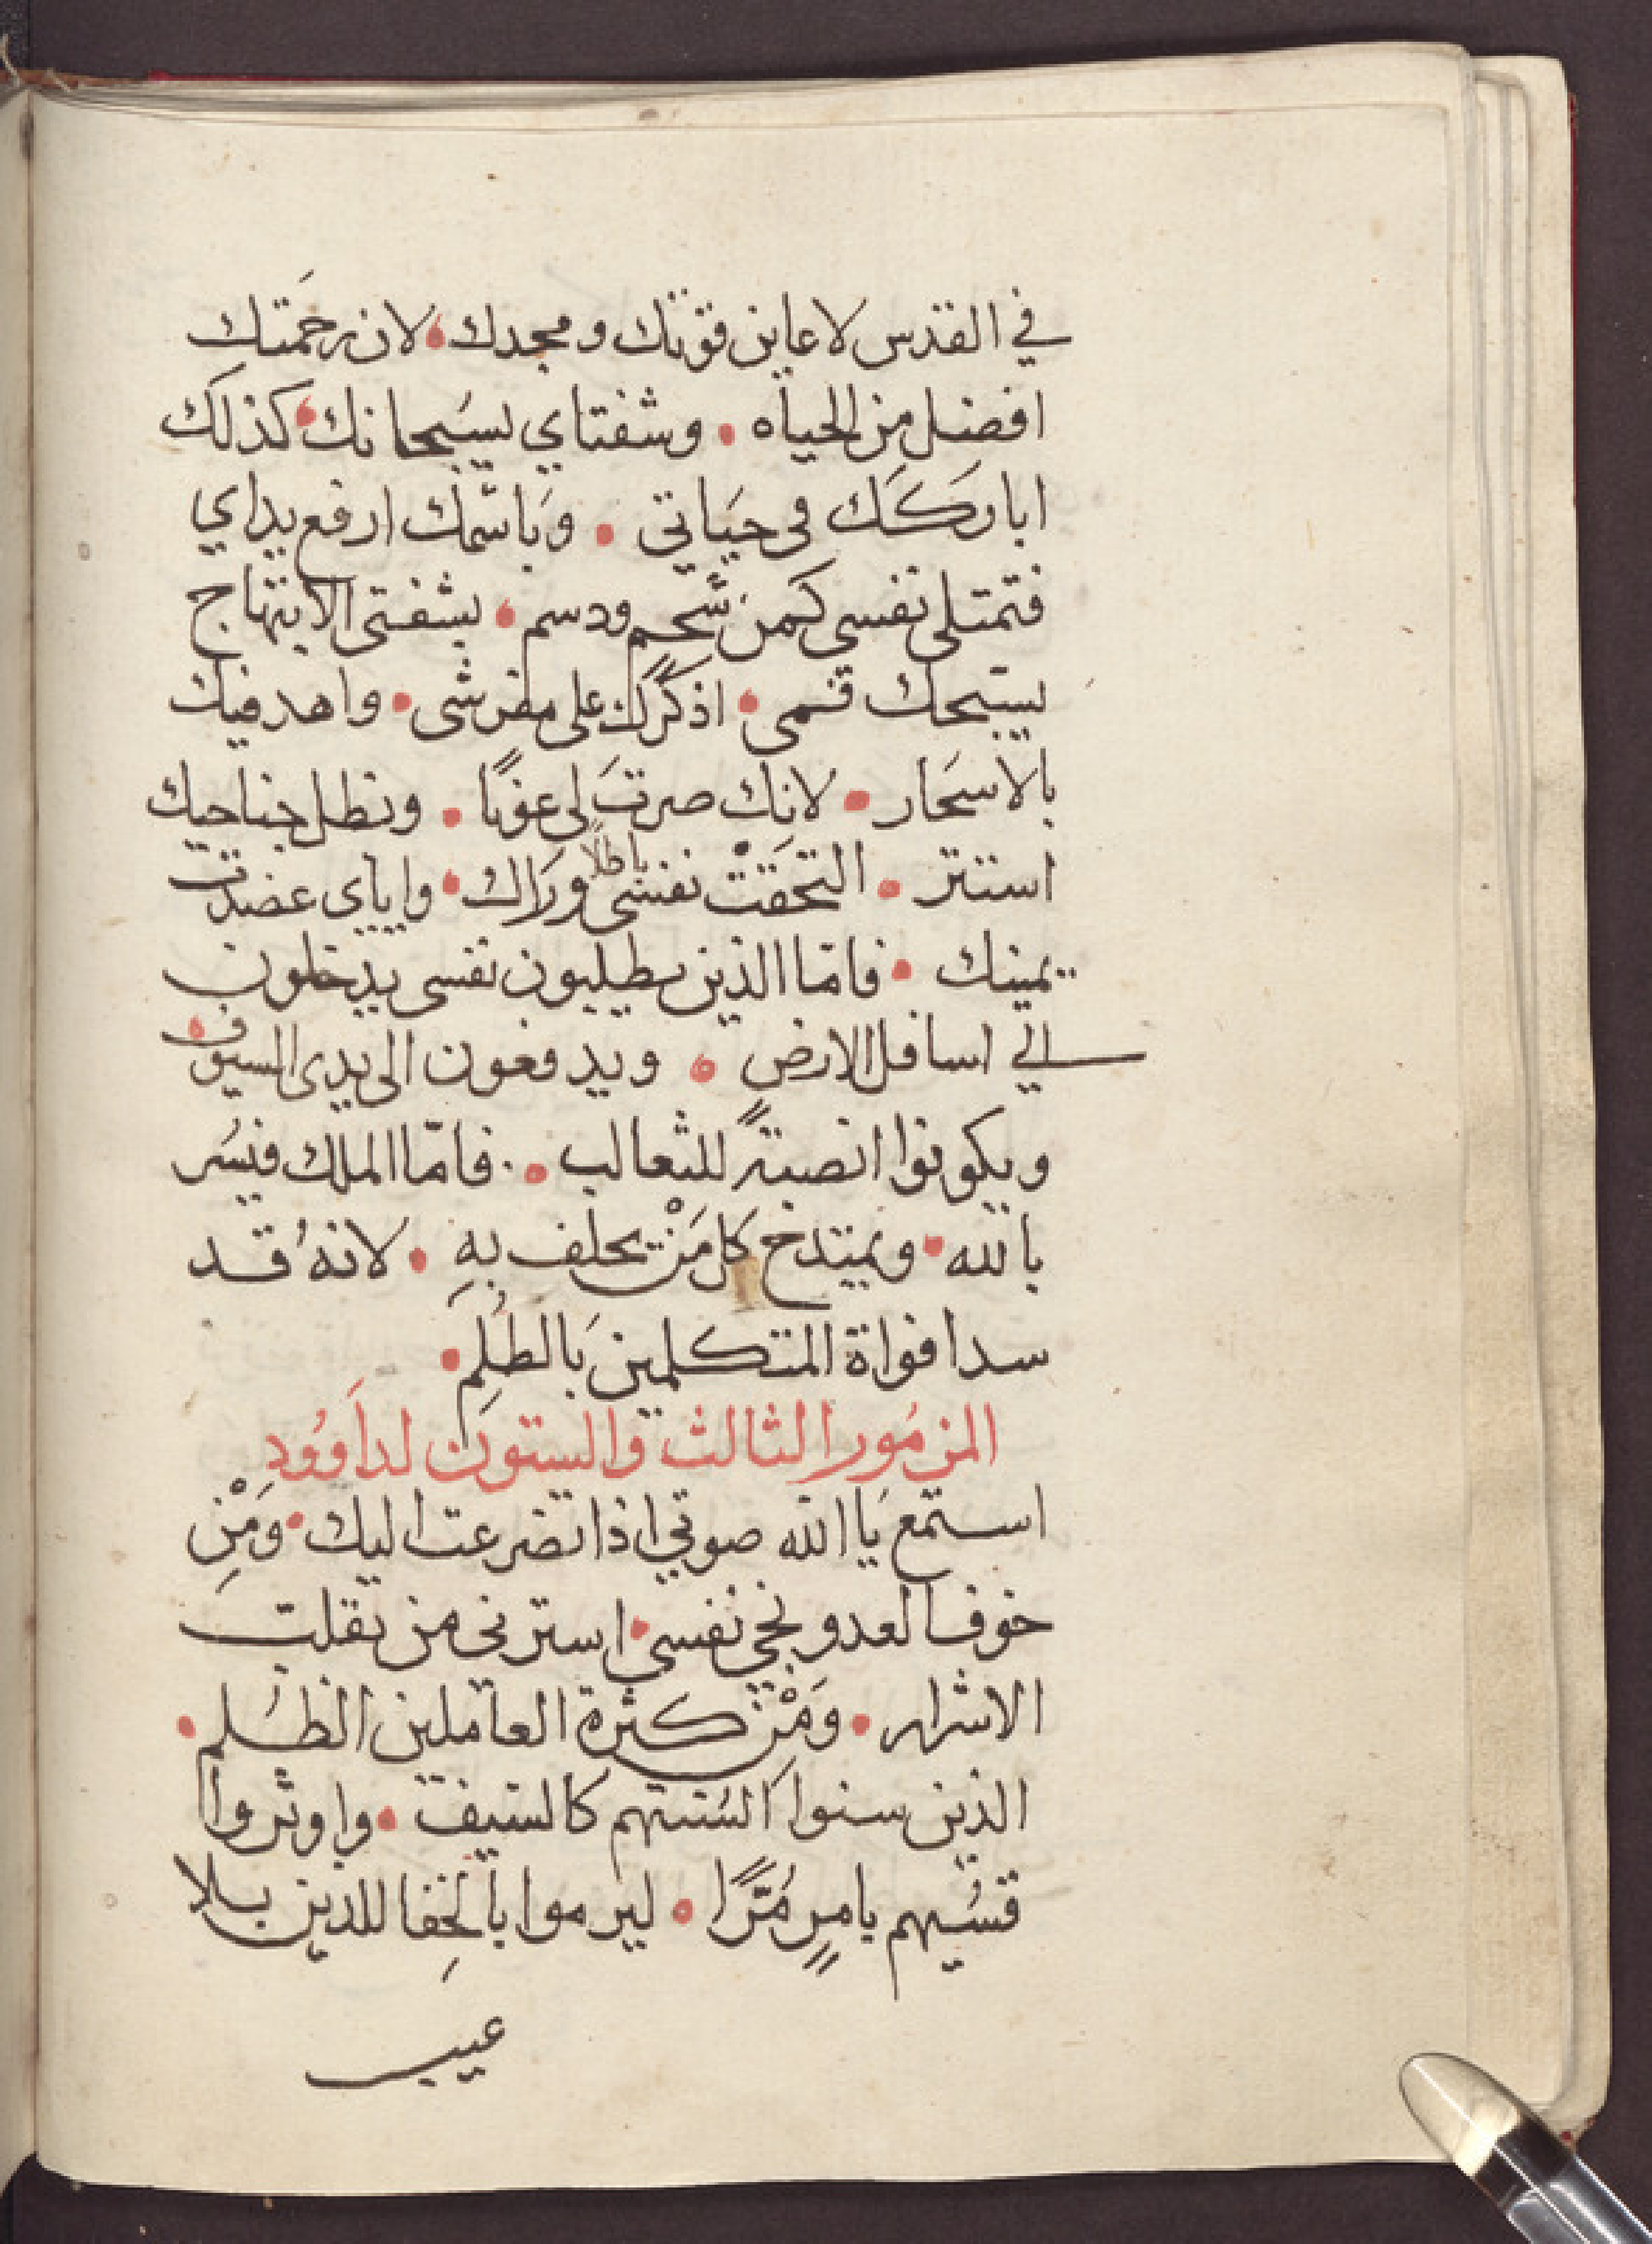 في القدس لاعاين قوتك ومجدك لان رحمتك
افضل من الحياه • وشفتاي يسبحانك كذلك
اباركك في حياتي • وباسمك ارفع يداي
فتمتلى نفسي كمن شحم ودسم • بشفتى الابتهاج
يسبحك فمى • اذكرك على مفرشى • واهد فيك
بالاسحار • لانك صرت لى عونًا • وبظل جناحيك
استتر • التحقت نفسى وراك • واياى عضدت
باطلًا
يمينك • فامّا الذين يطلبون نفسى يدخلون
الي اسافل الارض • ويدفعون الى يدى السيوف
ويكونوا انصبةً للثعالب • فامّا الملك فيسُر
بالله • ويمتدح كل مَنْ يحلف بهِ • لانهُ قد
سد افواة المتكلمين بالظلِم •
المزمُور الثالث والستون لداوُود
استمع يا الله صوتي اذا تضرعت اليك • ومَنْ
خوف العدو نجي نفسي • استرنى من تقلب
الاشرار • ومَنْ كثرة العاملين الظلم •
الذين سنوا السنتهم كالسيف • واوتروا
قسُيهم بامرٍ مُرًّا • ليرموا بالخِفا للذين بلا
عيب